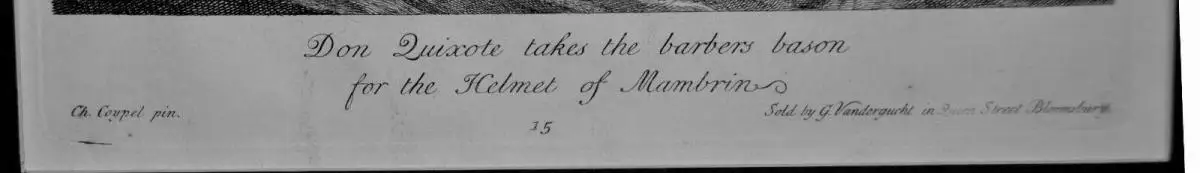 Don Quixote takes the barbers bason
for the Helmet of Mambrin
Ch. Coypel pin.
Sold by G. Vandergucht in Queen Street Bloomsbury.
15